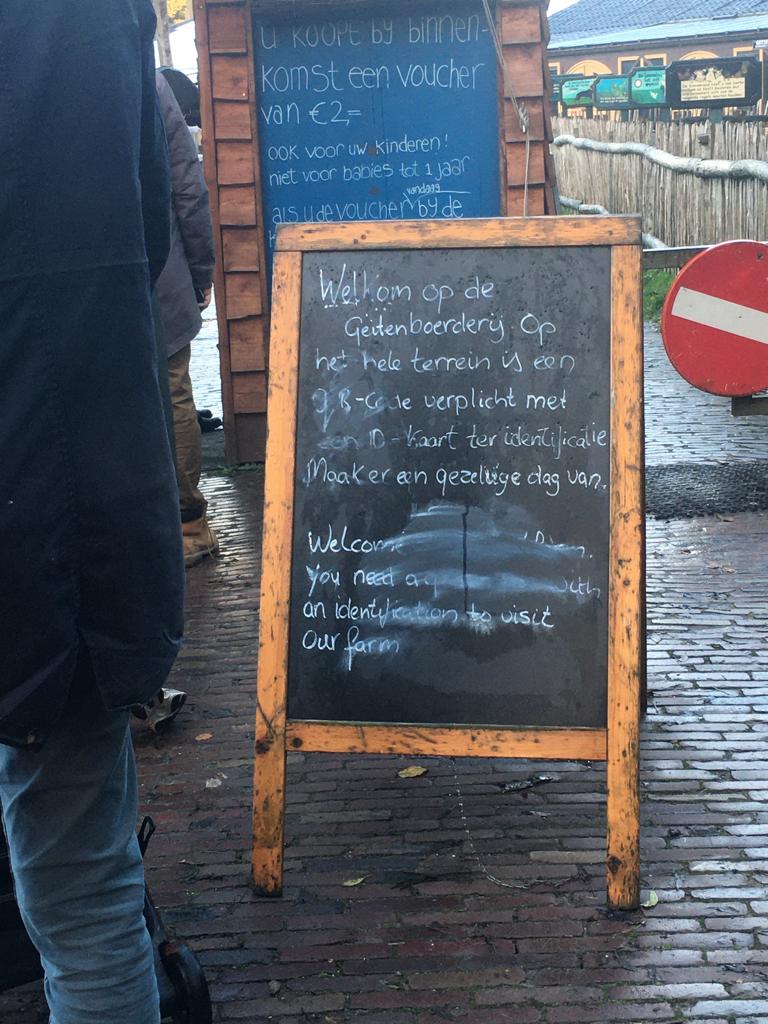 u koopt by binnen-
komst een voucher
van €2,=
ook voor uw kinderen!
niet voor babies tot 1 jaar
vandaag
als u de voucher by de
Welkom op de
Geitenboerderij. Op
het hele terrein is een
QR-code verplicht met
een ID-Kaart ter identificatie
Maak er een gezellige dag van.
Welcome
you need a with
an identification to visit
our farm